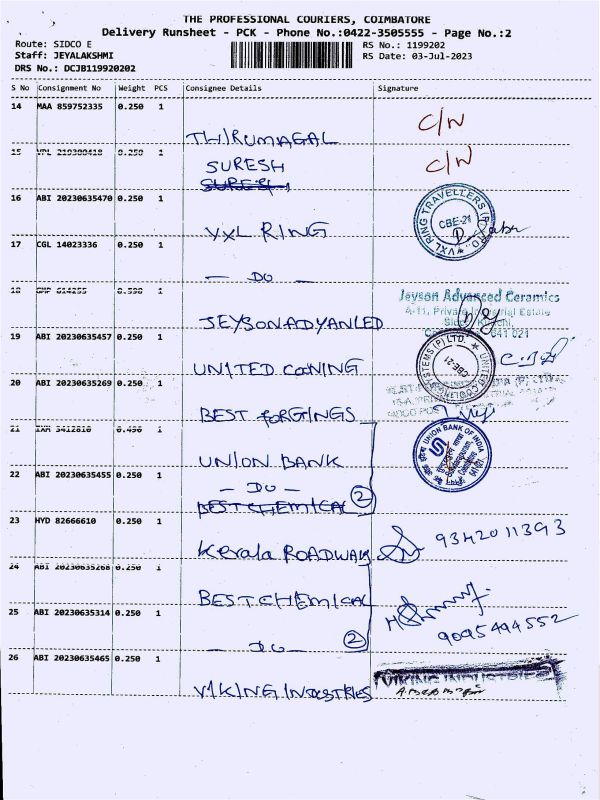 THE PROFESSIONAL COURIERS, COIMBATORE
Delivery Runsheet - PCK - Phone No.:0422-3505555 - Page No.:2
Route: SIDCO E
RS No.: 1199202
Staff: JEYALAKSHMI
RS Date: 03-Jul-2023
DRS No.: DCJB119920202
S No Consignment No Weight PCS Consignee Details Signature
14 MAA 859752335 0.250 1
C/N
THIRUMAGAL
15 0.250 1
C/N
SURESH
16 ABI 20230635470 0.250 1
VXL RING TRAVELLERS (P) LTD.
CBE-21
VXL RING
17 CGL 14023336 0.250 1
- DO -
18 1
Jeyson Advanced Ceramics
JEYSONADYANLED
641 021
19 ABI 20230635457 0.250 1
UNITED COONING
CBE-21
20 ABI 20230635269 0.250 1
BEST FORGINGS
21 0.496 1
UNION BANK OF INDIA
UNION BANK
22 ABI 20230635455 0.250 1
- DO -
BEST CHEMICAL 2
23 HYD 82666610 0.250 1
Kerala ROADWAY
9342011393
24 ABI 20230635268 0.250 1
BEST CHEMICAL
25 ABI 20230635314 0.250 1
9095494552
- DO - 2
26 ABI 20230635465 0.250 1
VIKING INDUSTRIES
VIKING INDUSTRIES